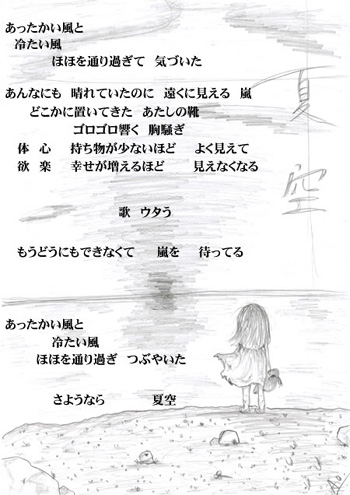 夏空
あったかい風と
冷たい風
ほほを通り過ぎて 気づいた
あんなにも 晴れていたのに 遠くに見える 嵐
どこかに置いてきた あたしの靴
ゴロゴロ響く 胸騒ぎ
体 心 持ち物が少ないほど よく見えて
欲 楽 幸せが増えるほど 見えなくなる
歌 ウタう
もうどうにもできなくて 嵐を 待ってる
あったかい風と
冷たい風
ほほを通り過ぎ つぶやいた
さようなら 夏空